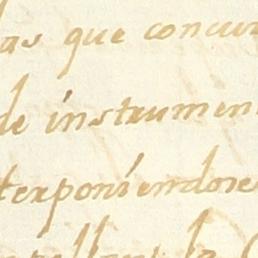 las que concur
de instrumen
terponiendose